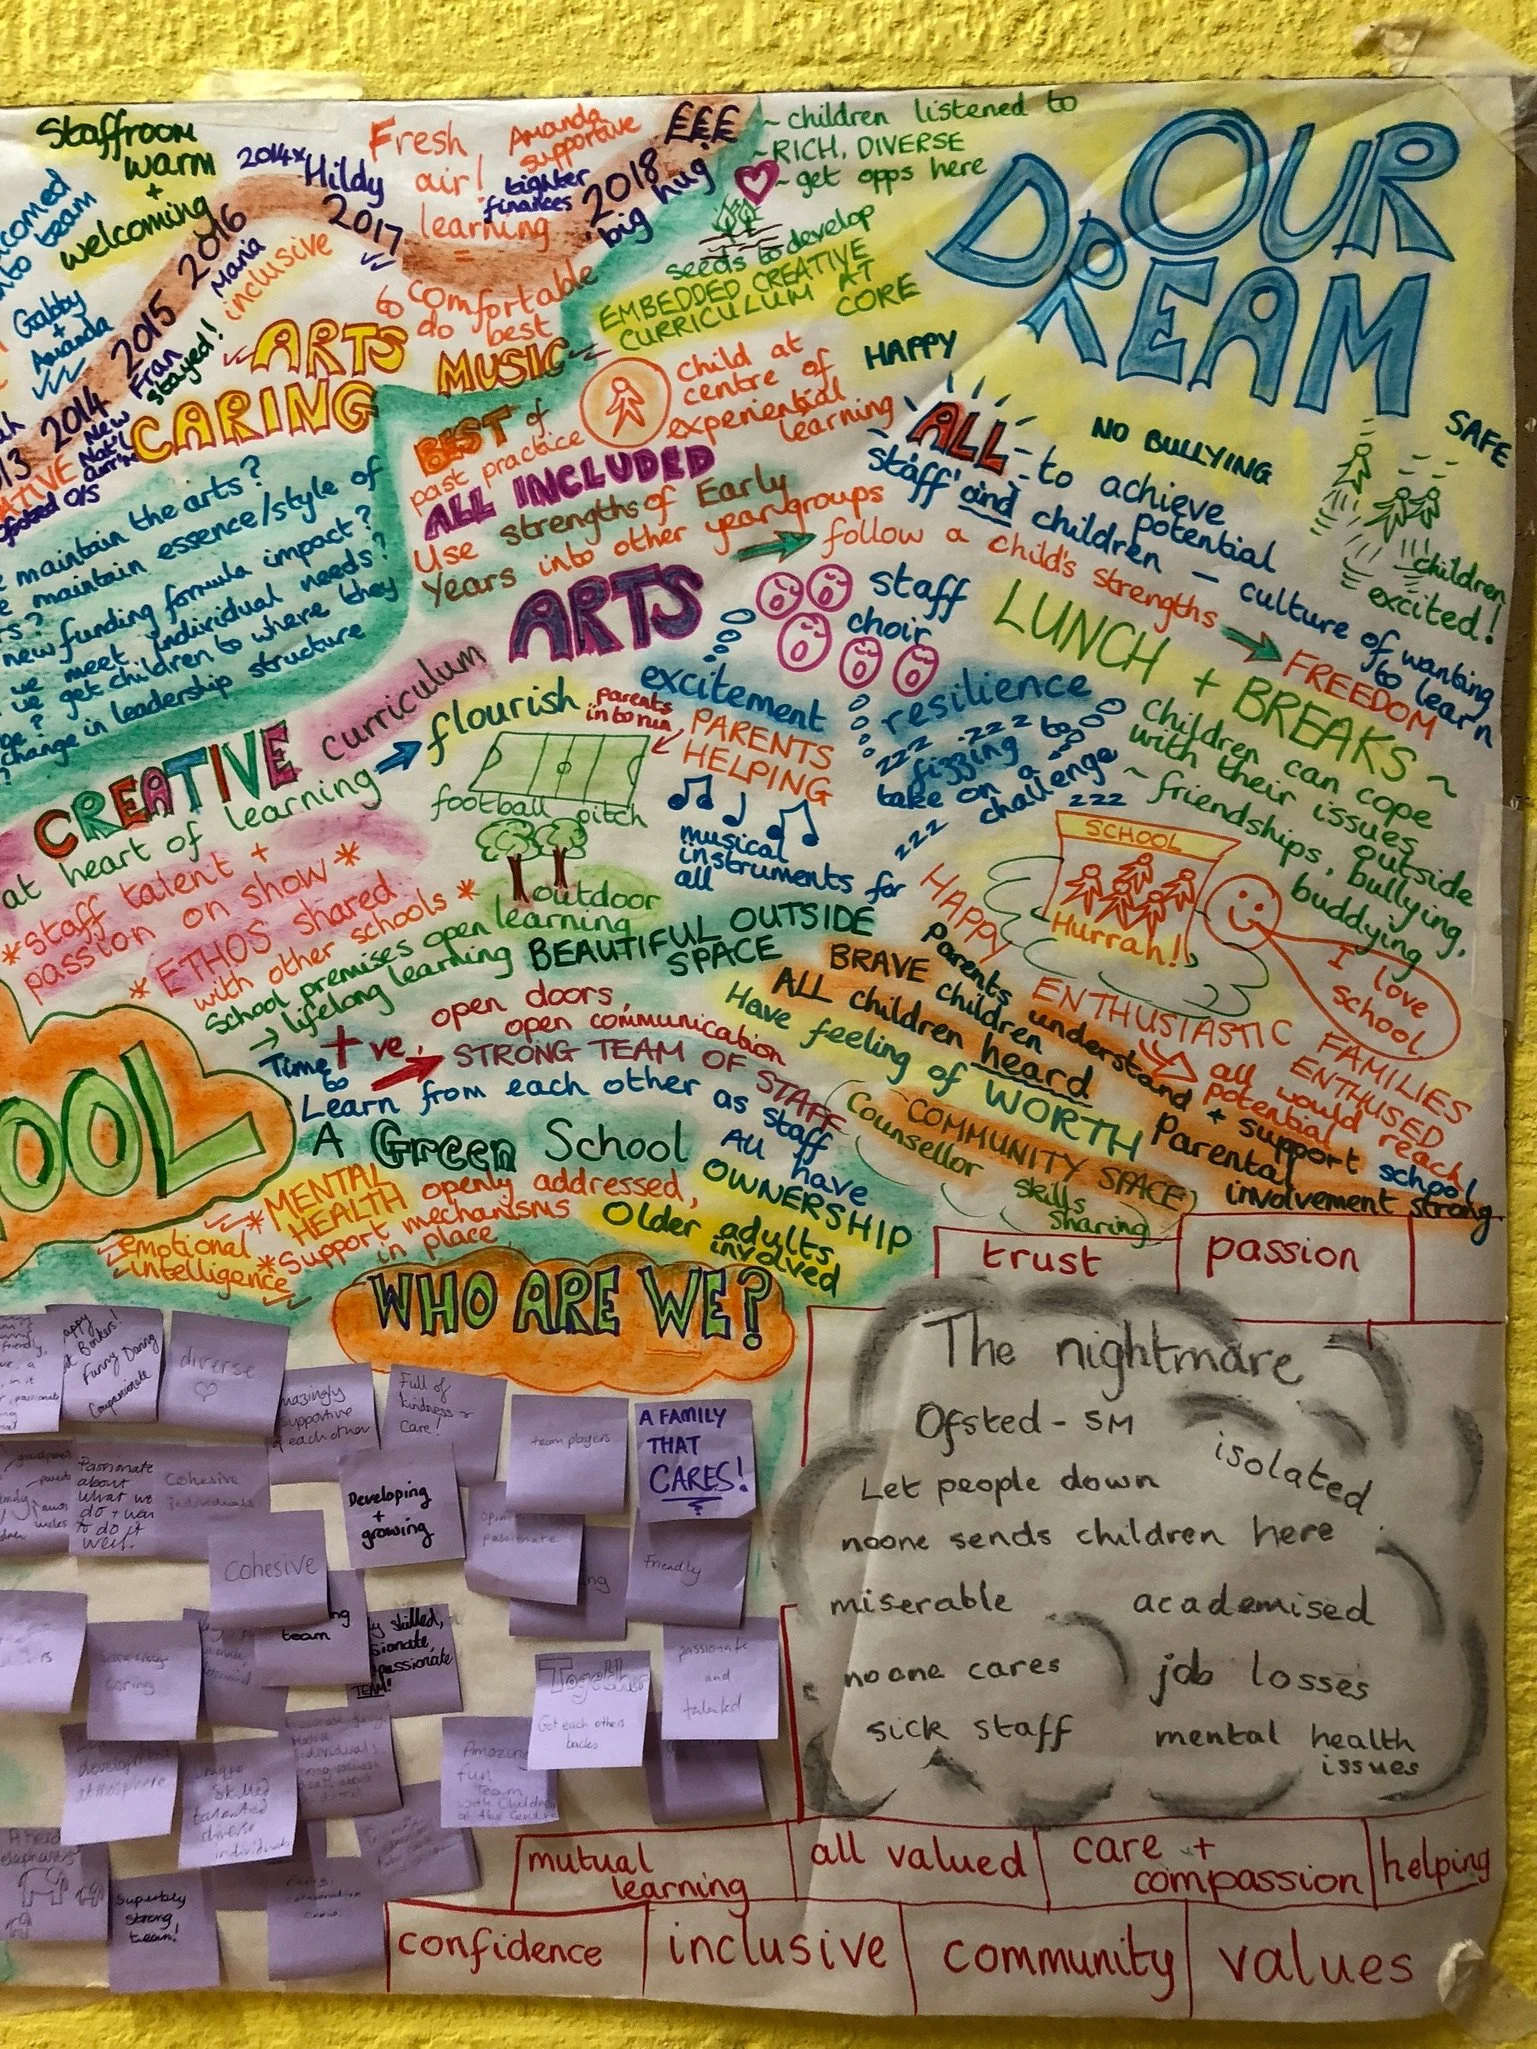 Staffroom
warm
+
welcoming
team
Gabby
+
Amanda
2014
New
Nat'l
2015
Fran
stayed!
2016
Maria
inclusive
2014
Hildy
2017
Fresh
air!
learning
=
comfortable
to do best
Amanda
supportive
tighter
finances
2018
big hug
£££
ARTS
CARING
MUSIC
maintain the arts?
maintain essence/style of
new funding formula impact?
we meet individual needs?
get children to where they
change in leadership structure
OUR
DREAM
~ children listened to
~ RICH, DIVERSE
~ get opps here
seeds to develop
EMBEDDED CREATIVE
CURRICULUM AT
CORE
HAPPY
child at
centre of
experiential
learning
BEST of
past practice
ALL INCLUDED
Use strengths of Early
Years into other year groups
follow a child's strengths
FREEDOM
NO BULLYING
SAFE
ALL - to achieve
potential
staff and children - culture of wanting
to learn
children
excited!
ARTS
staff
choir
excitement
resilience
zzz zzz
fizzing to
take on a
challenge
zzz
zzz
LUNCH + BREAKS ~
children can cope
with their issues
outside
~ friendships, bullying,
buddying
CREATIVE curriculum
at heart of learning
flourish
parents
in to run
PARENTS
HELPING
football pitch
musical
instruments for
all
* staff talent +
passion on show *
* ETHOS shared
with other schools *
outdoor
learning
School premises open
→ lifelong learning
BEAUTIFUL OUTSIDE
SPACE
SCHOOL
Hurrah!
I
love
school
HAPPY
ENTHUSIASTIC FAMILIES
all ENTHUSED
would reach
potential
BRAVE children
ALL children heard
Have feeling of WORTH
parents
understand + support school
Parental
involvement strong
+ve,
open doors,
open communication
STRONG TEAM OF STAFF
Time
to
Learn from each other as staff
OOL
A Green School
All have
OWNERSHIP
Counsellor
COMMUNITY SPACE
skills
sharing
* MENTAL
HEALTH openly addressed,
* Support mechanisms
in place
emotional
intelligence
Older adults
involved
WHO ARE WE?
Funny Daring
Compassionate
diverse
supportive
each other
Full of
kindness +
care!
team players
A FAMILY
THAT
CARES!
Passionate
about
what we
do +
to do it
well.
Cohesive
individuals
Developing
+
growing
passionate
Friendly
Cohesive
team
skilled,
TEAM!
caring
Together
Got each others
backs
passionate
and
talented
development
atmosphere
unique
skilled
talented
diverse
individuals
Amazing
fun
Team
with children
at the Centre
Superbly
strong
team!
trust
passion
The nightmare
Ofsted - SM
isolated
Let people down
noone sends children here
miserable
academised
noone cares
job losses
sick staff
mental health
issues
mutual
learning
all valued
care +
compassion
helping
confidence
inclusive
community
values